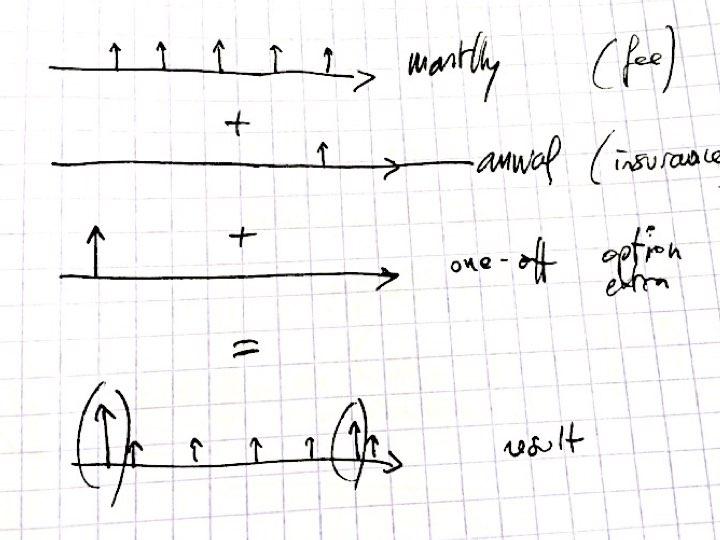 monthly (fee)
+
annual (insurance
+
one-off option
extra
=
result